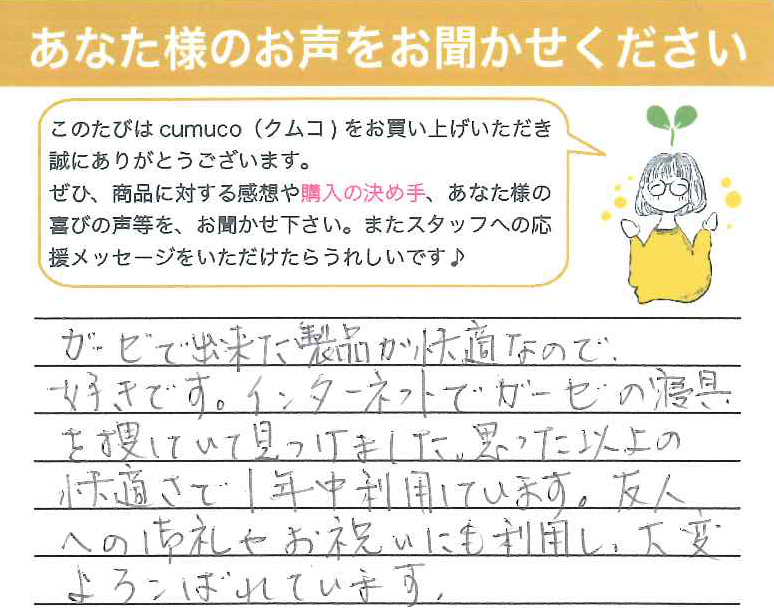 あなた様のお声をお聞かせください
このたびは cumuco（クムコ）をお買い上げいただき
誠にありがとうございます。
ぜひ、商品に対する感想や購入の決め手、あなた様の
喜びの声等を、お聞かせ下さい。またスタッフへの応
援メッセージをいただけたらうれしいです♪
ガーゼで出来た製品が快適なので、
好きです。インターネットでガーゼの寝具
を捜していて見つけました。思った以上の
快適さで1年中利用しています。友人
への御礼やお祝いにも利用し、大変
よろこばれています。